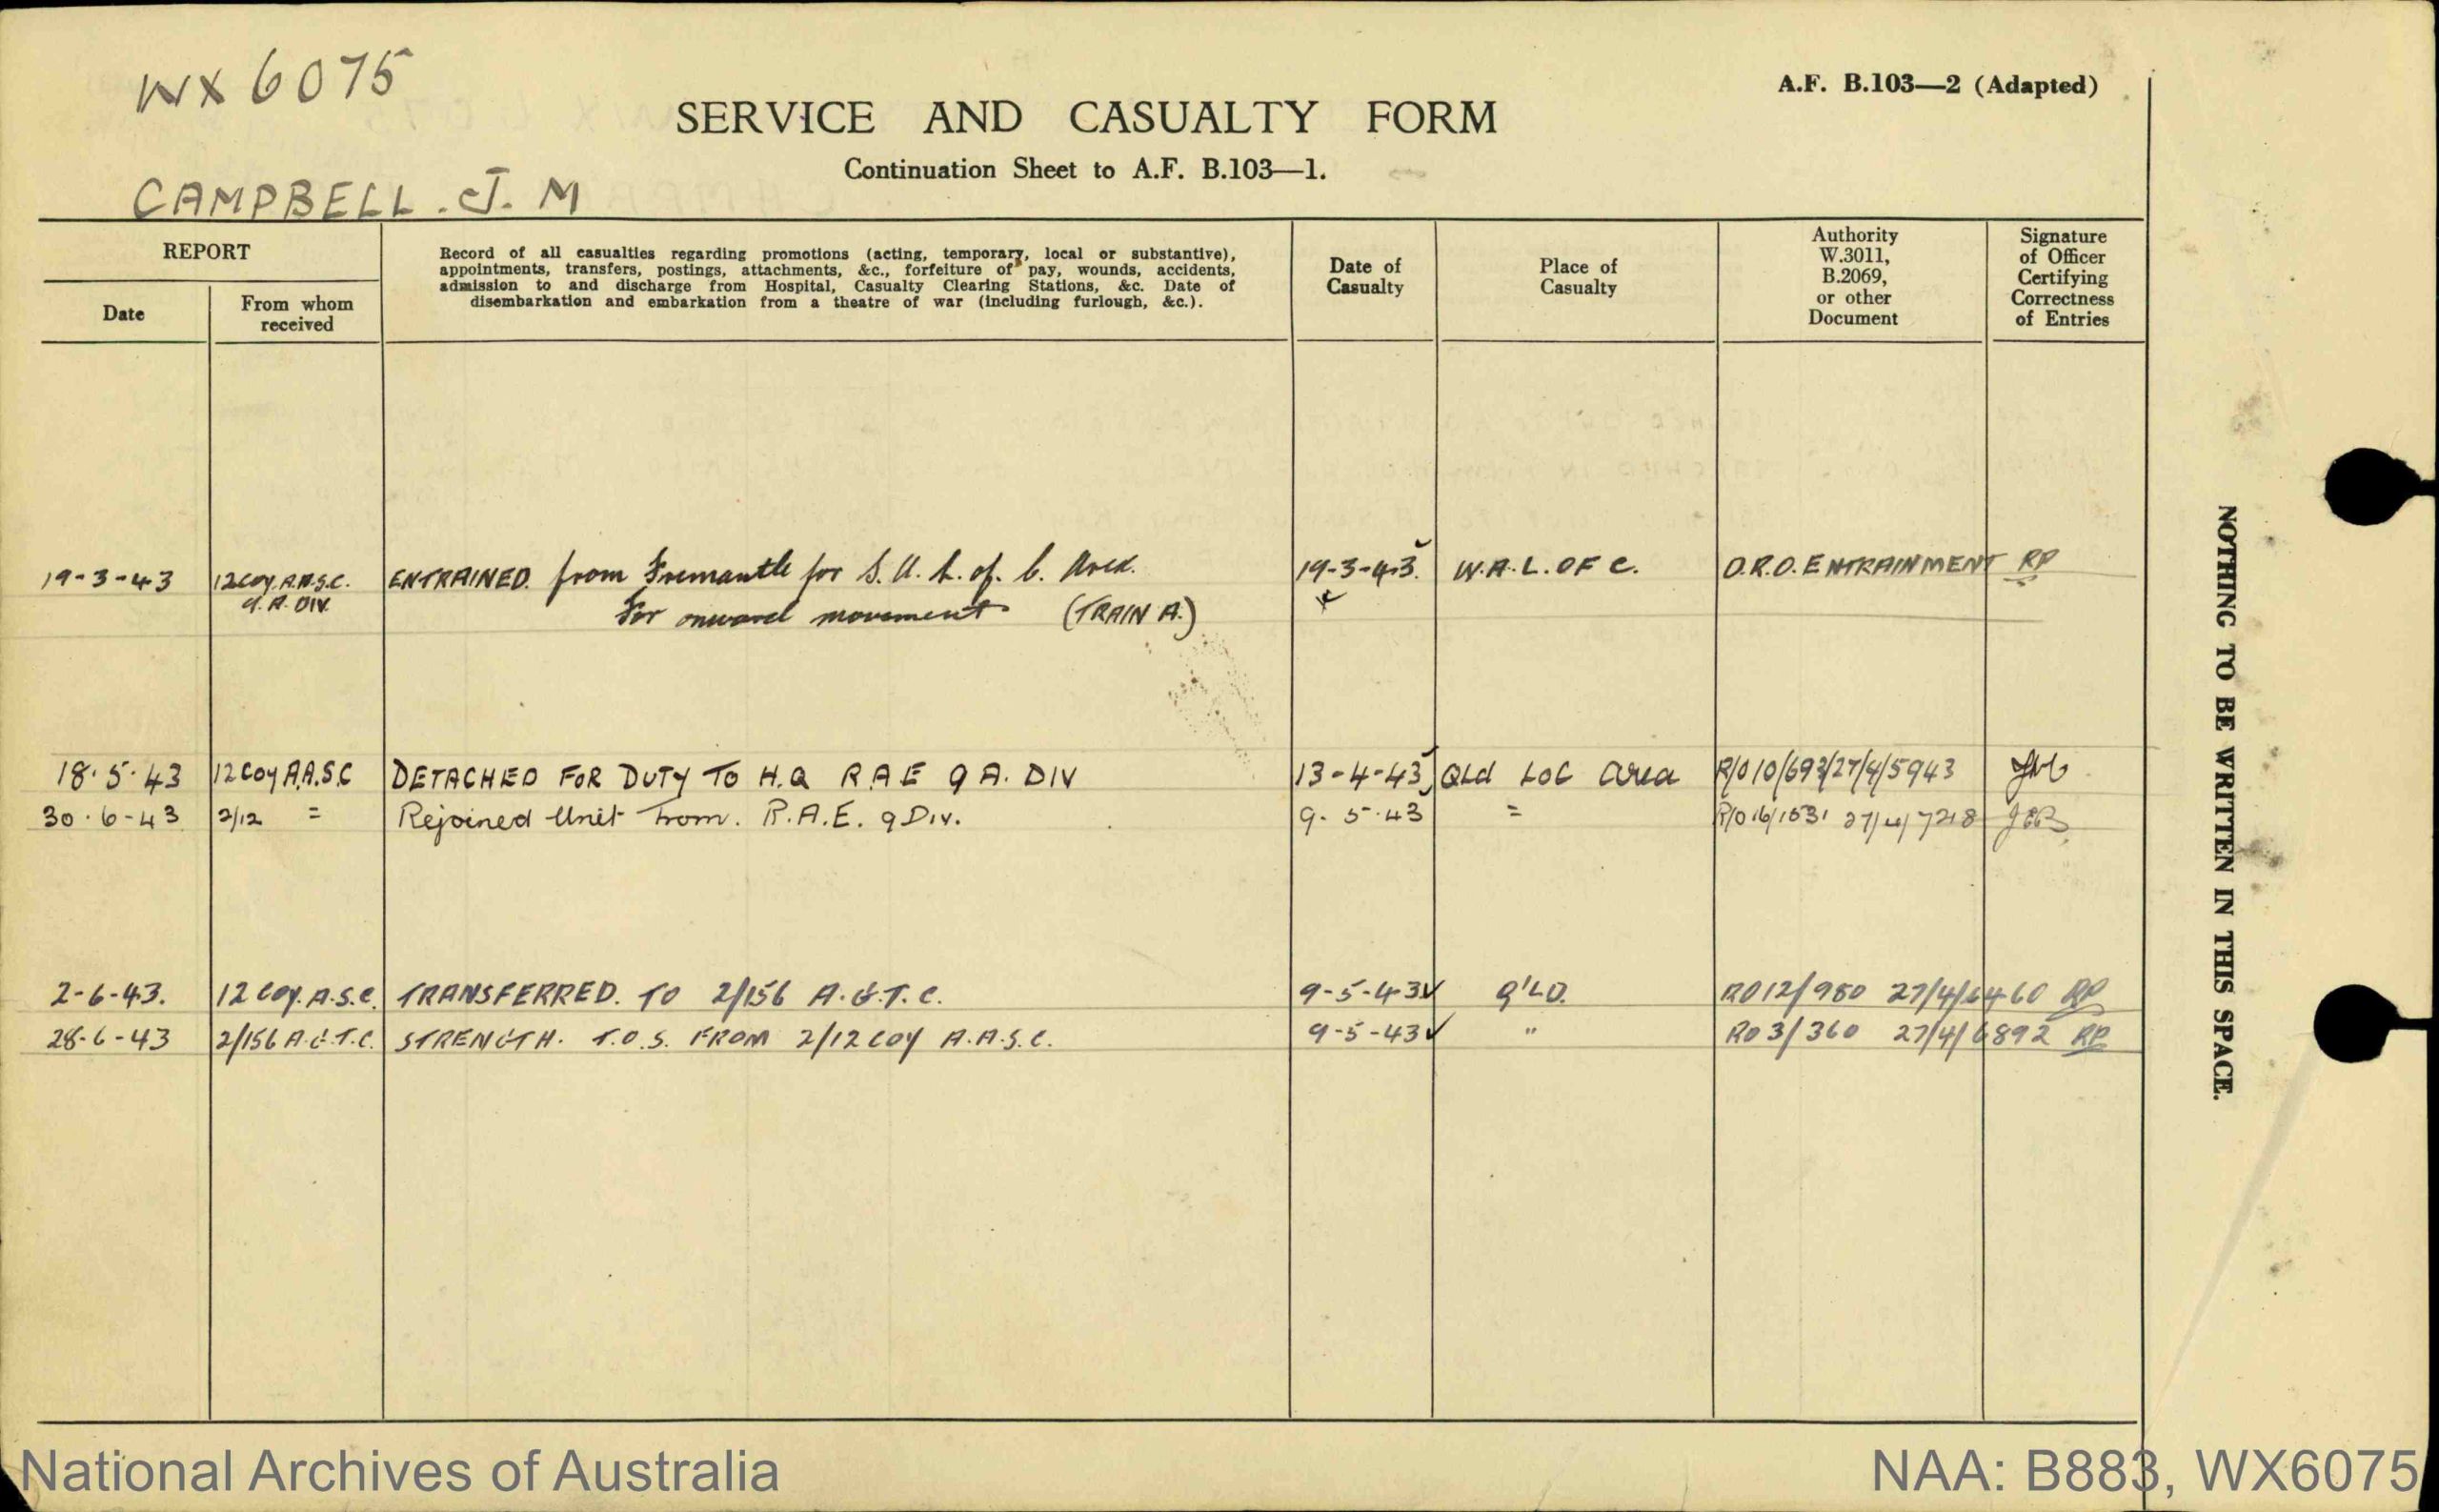 WX 6075
A.F. B.103—2 (Adapted)
SERVICE AND CASUALTY FORM
Continuation Sheet to A.F. B.103—1.
CAMPBELL. J. M
REPORT
Date
From whom
received
Record of all casualties regarding promotions (acting, temporary, local or substantive),
appointments, transfers, postings, attachments, &c., forfeiture of pay, wounds, accidents,
admission to and discharge from Hospital, Casualty Clearing Stations, &c. Date of
disembarkation and embarkation from a theatre of war (including furlough, &c.).
Date of
Casualty
Place of
Casualty
Authority
W.3011,
B.2069,
or other
Document
Signature
of Officer
Certifying
Correctness
of Entries
19-3-43 12 Coy. A.A.S.C. ENTRAINED from Fremantle for S.A. L. of. C. Area. 19-3-43. W.A. L. OF C. O.R.O. ENTRAINMENT RP
A. DIV For onward movement (TRAIN A.)
18.5.43 12 Coy A.A.S.C DETACHED FOR DUTY TO H.Q R.A.E 9 A. DIV 13-4-43 QLd LOC area R/O 10/693/27/4/5943
30.6-43 2/12 = Rejoined Unit from. R.A.E. 9 Div. 9.5.43 = R/O 16/1531 27/4/7218
2-6-43. 12 Coy. A.S.C. TRANSFERRED. TO 2/156 A.G.T.C. 9-5-43 Q'LD. RO 12/980 27/4/6460 RP
28-6-43 2/156 A.G.T.C. STRENGTH. T.O.S. FROM 2/12 COY A.A.S.C. 9-5-43 " RO 3/360 27/4/6892 RP
NOTHING TO BE WRITTEN IN THIS SPACE.
National Archives of Australia
NAA: B883, WX6075